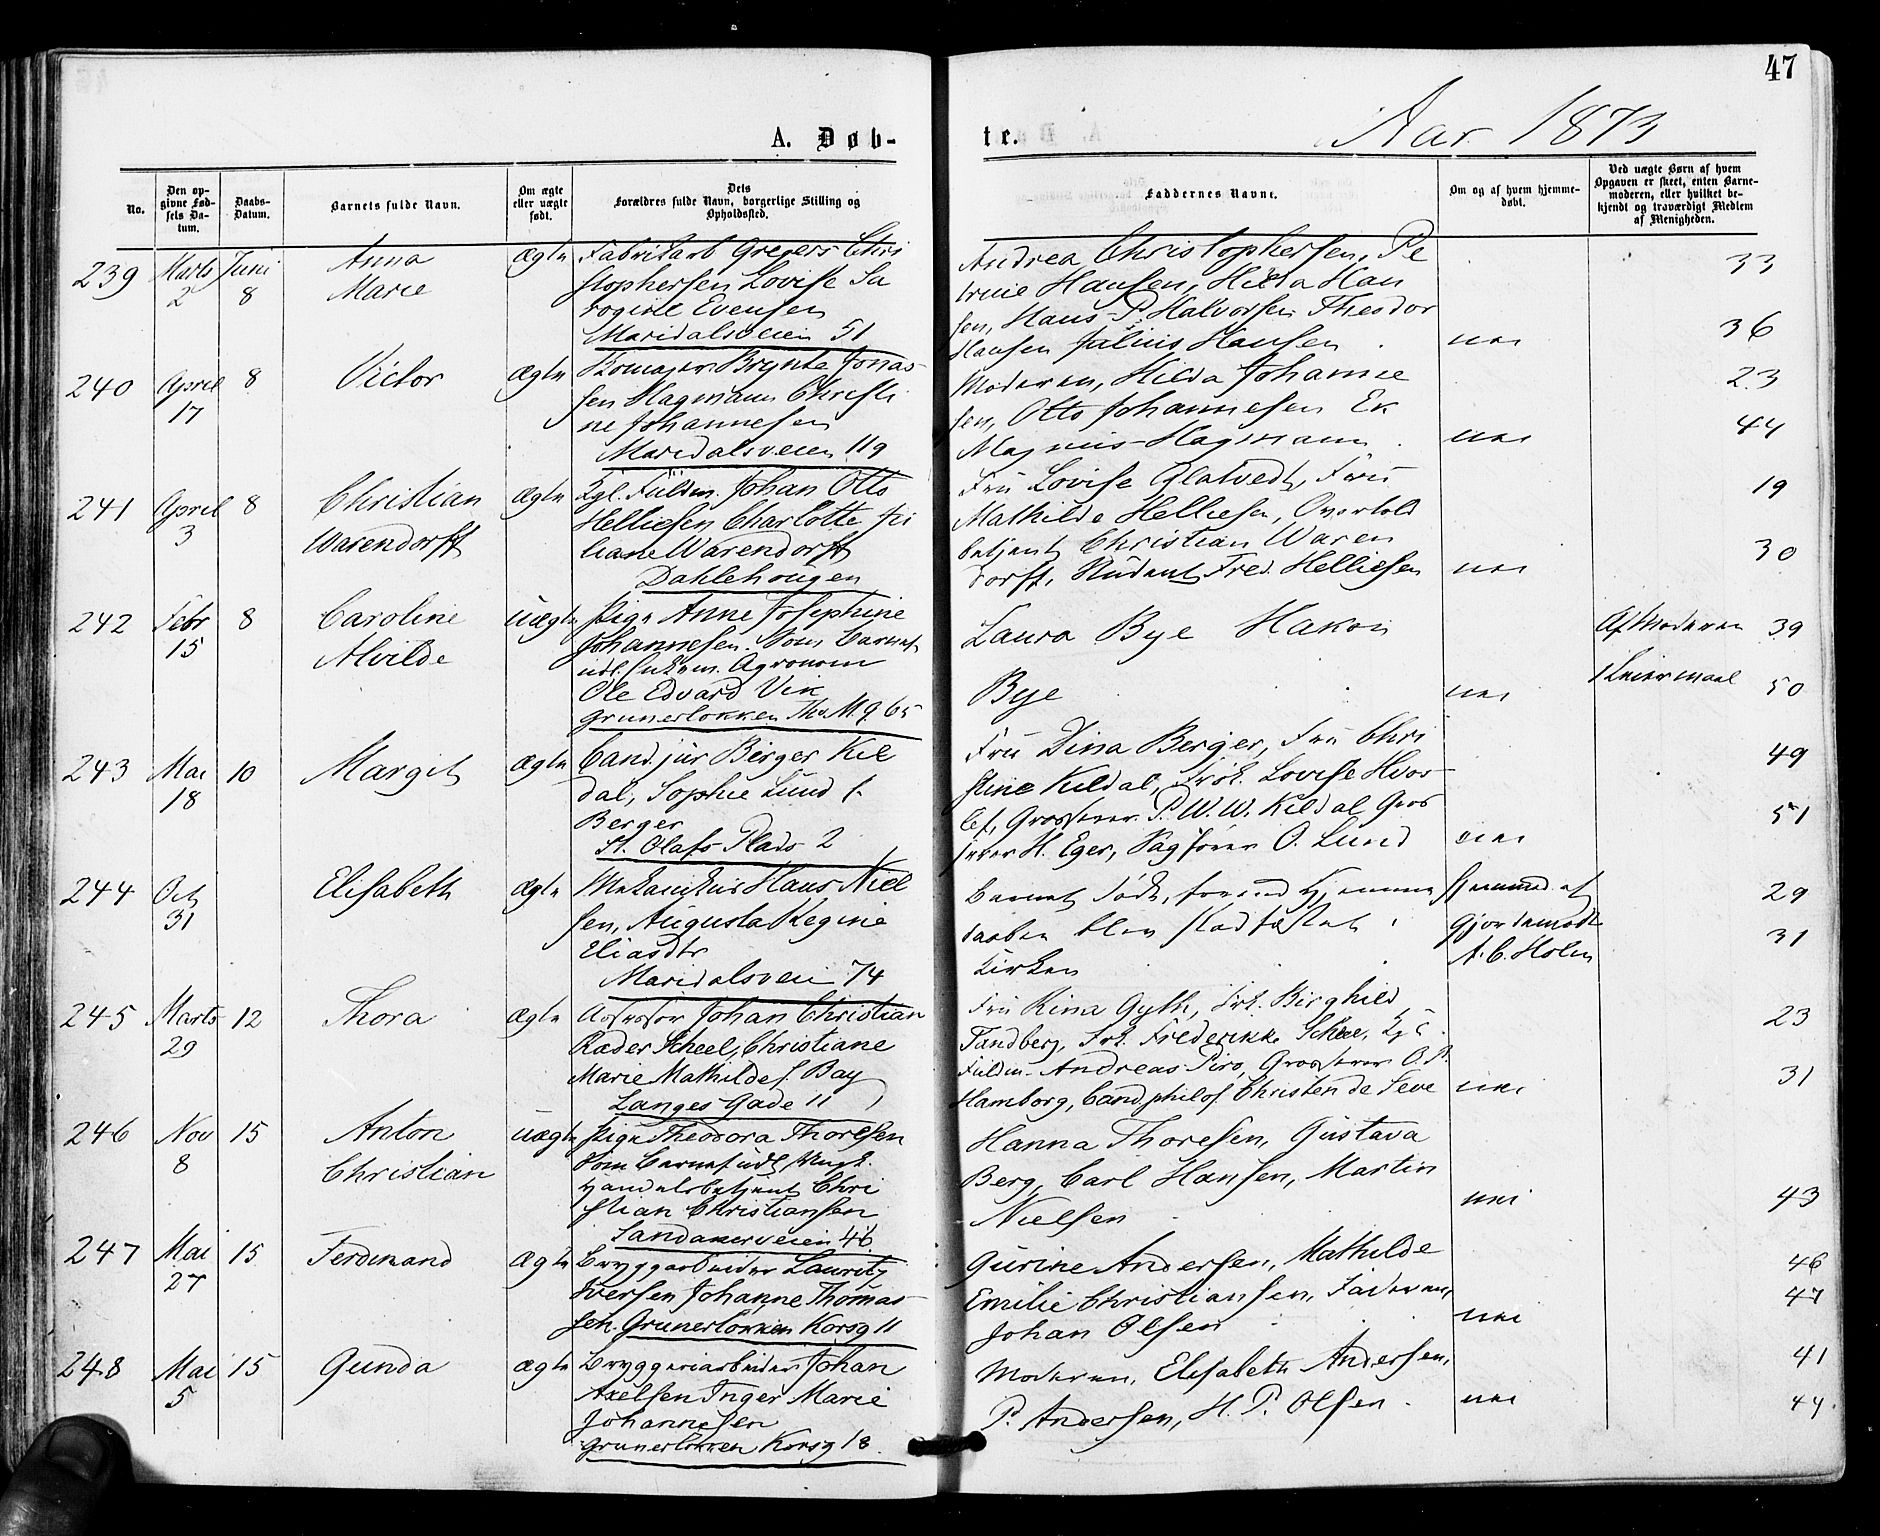 47
A. Døb-
te.
Aar 1873
No.
Den opgivne Fødsels Datum.
Daabs-Datum.
Barnets fulde Navn.
Om ægte eller uægte født.
Dets Forældres fulde Navn, borgerlige Stilling og Opholdssted.
Faddernes Navne.
Om og af hvem hjemmedøbt.
Ved uægte Børn af hvem Opgaven er skeet, enten Barnemoderen, eller hvilket bekjendt og troværdigt Medlem af Menigheden.
239 Marts 2 Juni 8
Anna
Marie
Ægte
Fabrikarb Gregers Chri
stophersen Lovise Sa
Evensen
Maridalsveien 51
Andrea Christophersen, Pe
trine Hansen, Hilda Han
sen, Hans P. Halvorsen Theodor
Hansen Julius Hansen
nei
33
36
240 April 17 8
Victor
Ægte
Brynte Jonas-
sen Hagmann Christi
ne Johannesen
Maridalsveien 119
Moderen, Hilda Johanne
sen, Otto Johannesen Er
Magnus Hagmann
nei
23
44
241 April 3 8
Christian
Warendorff
Ægte
Kgl. Fuldm. Johan Otto
Helliesen Charlotte Ju
liane Warendorff
Dahlehougen
Fru Lovise Glatvedt, Fru
Mathilde Helliesen, Overtold
betjent Christian Waren
dorff, Student Fred. Helliesen
nei
19
30
242 Febr 15 8
Caroline
Alvilde
Uægte
Pige Anne Josephine
Johannesen. Som Barnef.
udl. Agronom
Ole Edvard Vik
Grunerløkken Th. M. g 65
Laura Bye Hakon
Bye
nei
Af Moderen
1 Leiermaal
39
50
243 Mai 18 10
Margit
Ægte
Cand jur Birger Kil
dal, Sophie Lund f.
Berger
St. Olafs Plads 2
Fru Dina Berger, Fru Chri
stine Kildal, Frøk. Lovise Hvos-
lef, Grosserer P. W. W. Kildal Gros
serer H. Eger, Sagfører O. Lund
nei
49
51
244 Oct 31
Elisabeth
Ægte
Mekanikus Hans Niel
sen, Augusta Regine
Eliasdtr
Maridalsvei 74
Barnet døde, forend Hjemme
daaben blev stadfæstet i
Kirken
Hjemmed. af
Gjordemoder
A. C. Holm
29
31
245 Marts 29 12
Thora
Ægte
Assessor Johan Christian
Ræder Scheel, Christiane
Marie Mathilde f. Bay
Langes Gade 11
Fru Rina Gyth, Frk. Birghild
Tandberg, Frk. Frederikke Scheel, Kgl.
Fuldm. Andreas Piro, Grosserer O. P.
Hamborg, Cand. philos Christen de Seve
nei
23
31
246 Nov 8 15
Anton
Christian
Uægte
Pige Theodora Thoresen
Som Barnef udl Ungk.
Handelsbetjent Chri
stian Christiansen
Sandakerveien 46
Hanna Thoresen, Gustava
Berg, Carl Hansen, Martin
Nielsen
nei
43
247 Mai 27 15
Ferdinand
Ægte
Bryggarbeider Lauritz
Iversen Johanne Thomas-
sen. Grunerløkken Korsg 11
Gurine Andersen, Mathilde
Emilie Christiansen, Faderen,
Johan Olsen
nei
46
47
248 Mai 5 15
Gunda
Ægte
Bryggeriarbeider Johan
Axelsen Inger Marie
Johannesen
Grunerløkken Korsg 18.
Moderen, Elisabeth Andersen,
P. Andersen, H. P. Olsen
nei
41
44